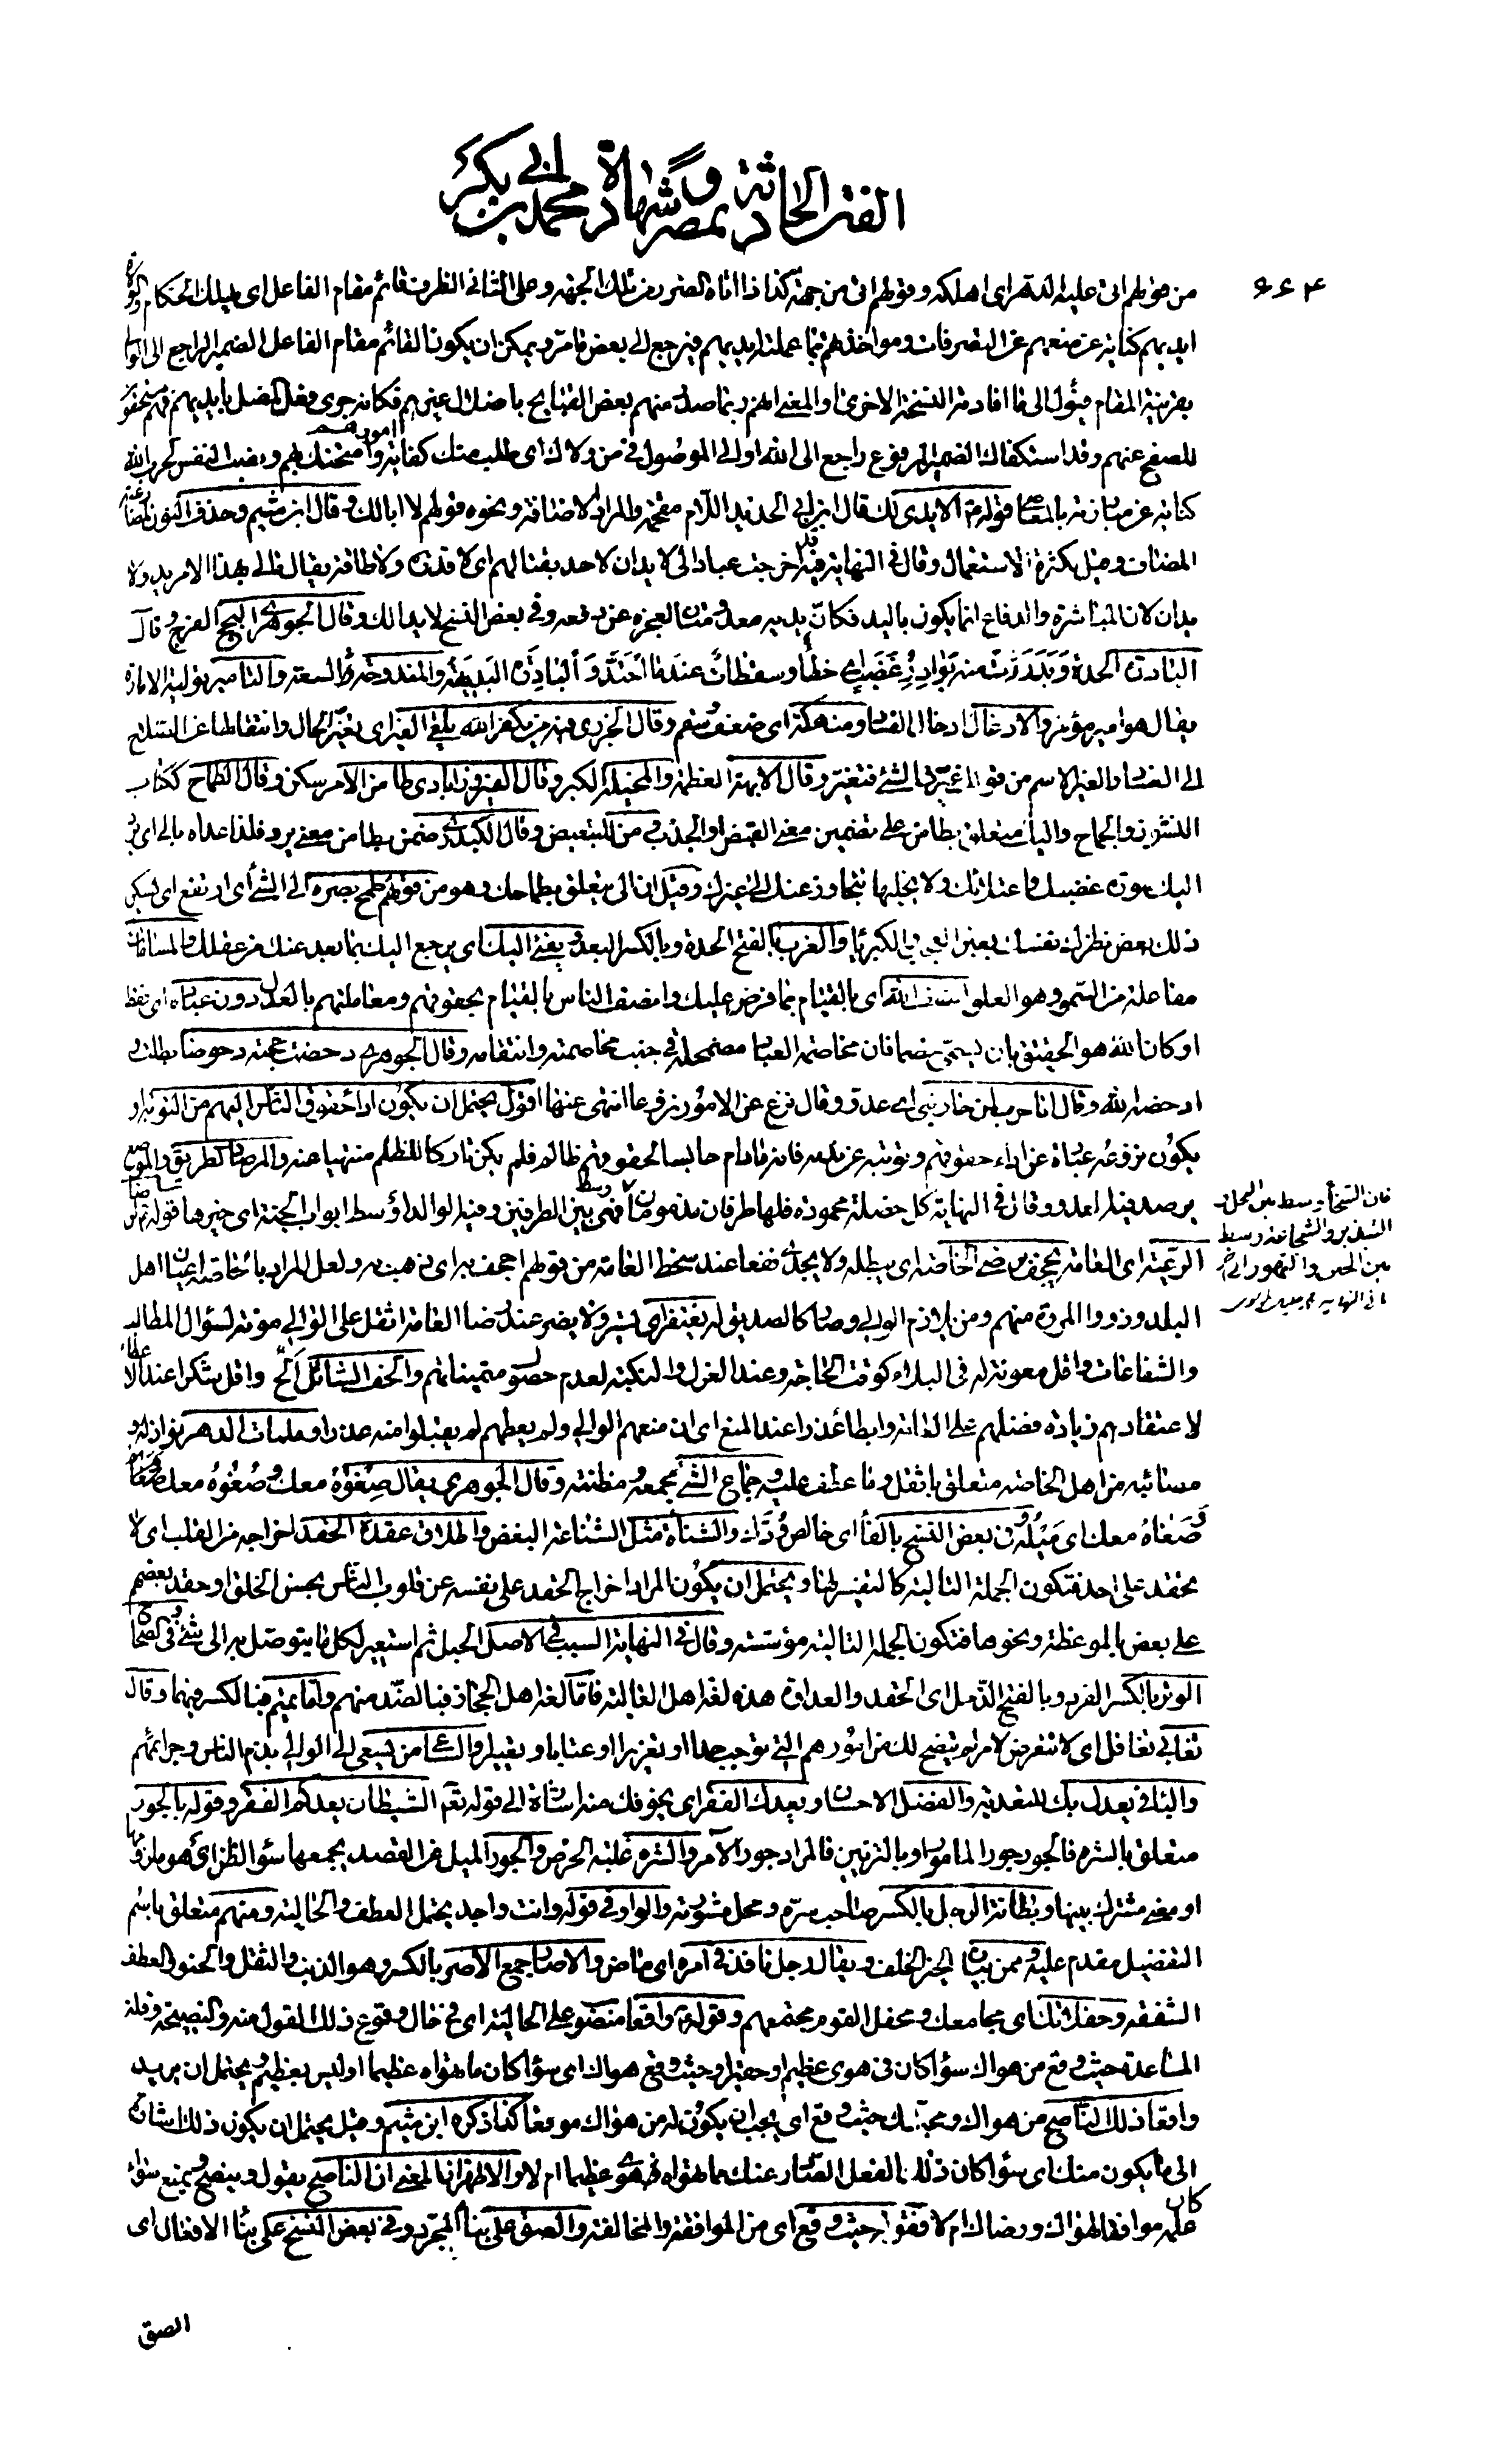 الفتن الحادثة بمصر و شهادة محمد بن ابي بكر
٦٦٤
من قولهم اتى عليه الدهر اى اهلكه وقولهم اتى من جهة كذا اذا اتاه الضرر من تلك الجهة وعلى الثانى الظرف قائم مقام الفاعل اى يهلك الحكام والولاة
ايديهم كناية عن منعهم عن التصرفات ومواخذهم بما عملته ايديهم فيرجع الى بعض ما مر ويمكن ان يكون القائم مقام الفاعل الضمير الراجع الى الوالى
بقرينة المقام فيئول الى ما افادته النسخة الاخرى او المعنى انهم ربما صدر منهم بعض القبايح باضلال غيرهم فكانه جرى فعل المضل بايديهم فهم مستحقون
للصفح عنهم وقد استكفاك الضمير المرفوع راجع الى الله او الى الموصول فى من ولاك اى طلب منك كفاية امورهم وامتحنك بهم ونصب النفس لحرب الله
كناية عن مبارزته بالمعاصى قوله لا يدى لك قال ابن ابى الحديد اللام مقحمة والمراد الاضافة ونحوه قولهم لا ابا لك وقال ابن ميثم وحذف النون لمضارعته
المضاف وقيل لكثرة الاستعمال وقال فى النهاية فيه قد اخرجت عبادا لى لا يدان لاحد بقتالهم اى لا قدرة ولا طاقة يقال مالى بهذا الامر يد ولا
يدان لان المباشرة والدفاع انما يكون باليد فكان يديه معدومتان لعجزه عن دفعه وفى بعض النسخ لا يدا لك وقال الجوهرى البجح الفرح وقال
البادرة الحدة وبدرت منه بوادر غضب اى خطأ وسقطات عندما احتد والبادرة البديهة والمندوحة السعة والتامير تولية الامارة
يقال هو امير مؤمر والادغال ادخال الفساد ومنهكة اى ضعف وسقم وقال الجزرى فيه من يكفر الله يلقى الغير اى تغير الحال وانتقالها عن الصلاح
الى الفساد والغير الاسم من قولك غيرت الشئ فتغير وقال الابهة العظمة والمخيلة الكبر وقال الفيروزابادى طامن الامر سكن وقال الطماح ككتاب
النشوز والجماح والباء متعلق بطامن على تضمين معنى القبض او الجذب ومن للتبعيض وقال الكيدرى ضمن يطامن معنى يرد فلذا عداه بالى اى يرد
اليك سورة غضبك واعتدائك ولا يخليها تتجاوز عنك الى غيرك وقيل ان الى يتعلق بطماحك وهو من قولهم طمح بصره الى الشئ اى ارتفع اى يسكن
ذلك بعض نظرك نفسك بعين العجب والكبرياء والغرب بالفتح الحدة وبالكسر البعد ويفئ اليك اى يرجع اليك بما بعد عنك من عقلك والمساماة
مفاعلة من السمو وهو العلو انصف الله اى بالقيام بما فرض عليك وانصف الناس بالقيام بحقوقهم ومعاملتهم بالعدل دون عباده اى فقط
او كان الله هو الحقيق بان يسمى خصما فان مخاصمة العباد مضمحلة فى جنب مخاصمته وانتقامه وقال الجوهرى دحضت حجته دحوضا بطلت و
ادحضه الله وقال انا حرب لمن حاربنى اى عدو وقال نزع عن الامور نزوعا انتهى عنها اقول يحتمل ان يكون اداء حقوق الناس اليهم من التوبة او
يكون نزوعه عبارة عن اداء حقوقهم وتوبته عن ظلمه فانه مادام حابسا لحقوقهم ظالم فلم يكن تاركا للظلم منتهيا عنه والمرصاد الطريق والموضع
يرصد فيه العدو وقال فى النهاية كل خصلة محمودة فلها طرفان مذمومان فهى وسط بين الطرفين وفيه الوالد اوسط ابواب الجنة اى خيرها قوله
الرعية اى العامة يجحف برضى الخاصة اى يبطله ولا يجدى نفعا عند سخط العامة من قولهم اجحف به اى ذهب به ولعل المراد بالخاصة اعيان اهل
البلد وذووا المروة منهم ومن يلازم الوالى وصار كالصديق له يغتفر اى يستر ولا يضر عند رضا العامة اثقل على الوالى مؤنة لسؤال المطالب
والشفاعات واقل معونة له فى البلاء كوقت الحاجة وعند العزل والنكبة لعدم حصول متمنياتهم والحف السائل الح واقل شكرا عند الاعطاء
لاعتقادهم زيادة فضلهم على العامة وابطا عذرا عند المنع اى ان منعهم الوالى ولم يعطهم لم يقبلوا منه عذرا وملمات الدهر نوازله و
مصائبه من اهل الخاصة متعلق باثقل وما عطف عليه وجماع الشئ مجمعه ومظنته وقال الجوهرى يقال صغوه معك وصغوه معك
وصغاه معك اى ميله وفى بعض النسخ بالفاء اى خالص ودك والشناة مثل الشناعة البغض واطلاق عقدة الحقد اخراجه من القلب اى لا
تحقد على احد فتكون الجملة التالية كالتفسير لها ويحتمل ان يكون المراد اخراج الحقد على نفسه عن قلوب الناس بحسن الخلق او حقد بعضهم
على بعض بالموعظة ونحوها فتكون الجملة التالية مؤسسة وقال فى النهاية السبب فى الاصل الحبل ثم استعير لكل ما يتوصل به الى شئ وفى الصحاح
الوتر بالكسر الفرد وبالفتح الذحل اى الحقد والعداوة هذه لغة اهل العالية فاما لغة اهل الحجاز فبالضد منهم واما تميم فبالكسر فيهما وقال
تغابى تغافل اى لا تتعرض لامر لم يتضح لك من امورهم التى توجب حدا او تعزيرا او عتابا وتعييرا والساعى من يسعى الى الوالى بذم الناس وجرائمهم
والباء فى يعدل بك للتعدية والفضل الاحسان ويعدك الفقر اى يخوفك منه اشارة الى قوله تعالى الشيطان يعدكم الفقر وقوله بالجور
متعلق بالشره فالجور جور المامور او بالتزيين فالمراد جور الآمر والشره غلبة الحرص والجور الميل عن القصد يجمعها سوء الظن اى هو ملزومها
او معنى مشترك بينها وبطانة الرجل بالكسر صاحب سره ومحل مشورته والواو فى قوله وانت واجد يحتمل العطف والحالية ومنهم متعلق باسم
التفضيل مقدم عليه وممن بيان لخير الخلف ويقال رجل نافذ فى امره اى ماض والاصار جمع الاصر بالكسر وهو الذنب والثقل والحنو العطف
الشفقة وحفلاتك اى مجامعك ومحفل القوم مجتمعهم وقوله واقعا منصوب على الحالية اى فى حال وقوع ذلك القول منه والنصيحة وقلة
المساعدة حيث وقع من هواك سواء كان فى هوى عظيم او حقير او حيث وقع هواك اى سواء كان ما تهواه عظيما او ليس بعظيم ويحتمل ان يريد
واقعا ذلك الناصح من هواك ومحبتك حيث وقع اى يجب ان يكون له من هواك موقعا كذا ذكره ابن ميثم وقيل يحتمل ان يكون ذلك اشارة
الى ما يكون منك اى سواء كان ذلك الفعل الصادر عنك مما تهواه هوى عظيما ام لا والاظهر ان المعنى ان الناصح يقول وينصح ويمنع سواء
كان عليه موافقا لهواك ورضاك ام لا فقوله حيث وقع اى من الموافقة والمخالفة والصق على بناء المجرد وفى بعض النسخ على بناء الافعال اى
الصق
فان السخاء وسط بين البخل و
التبذير والشجاعة وسط
بين الجبن والتهور الى آخر
ما فى النهاية